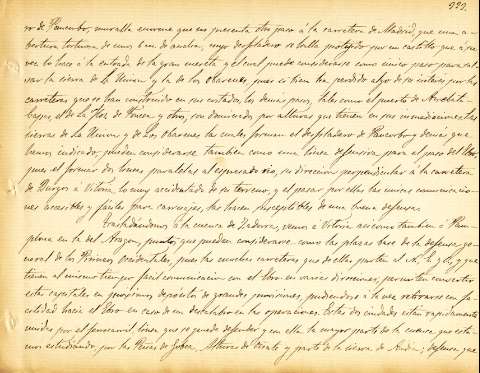 222.
ro de Pancorbo, muralla enorme que nos presenta otro paso á la carretera de Madrid, que una a-
bertura tortuosa de unos 6 m. de anchura, cuyo desfiladero se halla protegido por un castillo que á su
vez lo hace á la entrada de la gran meseta, y el cual puede considerarse como unico paso para
la sierra de la Union y la de los Obarenes, pues si bien ha perdido algo de su interés por las
carreteras que se han construido en sus costados, los demás pasos, tales como el puerto de
el de la Hoz de y otro, son dominados por alturas que tienen en sus inmediaciones las
sierras de la Union y de los Obarenes las cuales, forman el desfiladero de Pancorbo y demás que
hemos indicado, pueden considerarse tambien como una linea defensiva para el paso del Ebro,
pues el formar dos lineas paralelas al espresado rio, su direccion perpendicular á la carretera
de Burgos á Vitoria, lo muy accidentado de su terreno, y el pasar por ellas las unicas comunicacio-
nes accesibles y faciles para carruajes, las hacen susceptibles de una buena defensa.
Trasladandonos á la cuenca de Zadorra, vemos á Vitoria asi como tambien á Pam-
plona en la del Aragon, puntos, que pueden considerarse como las plazas base de la defensa ge-
neral de los Pirineos Occidentales, pues las muchas carreteras que de ellas parten al N. S. y O., y que
tienen al mismo tiempo facil comunicacion con el Ebro en varias direcciones, permiten convertir
estas capitales en grandisimos depósitos de grandes provisiones, pudiendose á la vez retirarse con fa-
cilidad hacia el Ebro en caso de un descalabro en las operaciones. Estas dos ciudades estan rapidamente
unidas por el ferrocarril, linea que se puede defender y en ella la mayor parte de la cuenca que esta-
mos estudiando, por las Peñas de Alturas de y parte de la sierra de Andia; defensa que